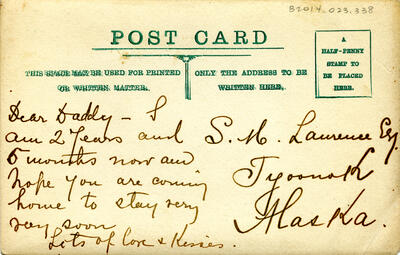 B2014.023.338
POST CARD
A
HALF-PENNY
STAMP TO BE
PLACED
HERE.
THIS SPACE MAY BE USED FOR PRINTED
OR WRITTEN MATTER.
ONLY THE ADDRESS TO BE
WRITTEN HERE.
Dear Daddy – I
am 2 Years and
5 months now and
hope you are coming
home to stay very
very soon
Lots of love & Kisses.
S. M. Laurence Esq.
Tyoonok
Alaska.